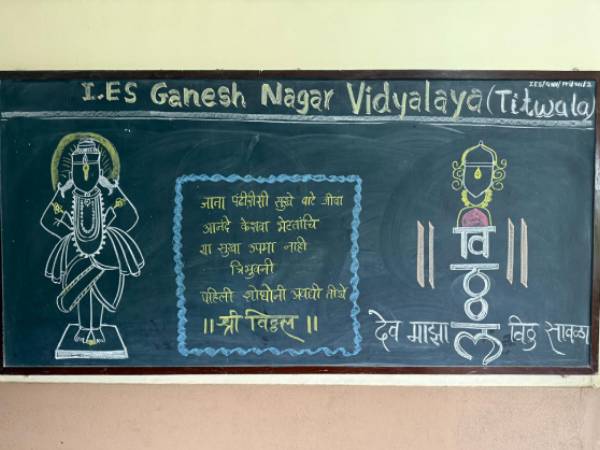 I.ES Ganesh Nagar Vidyalaya (Titwala)
जाता पंढरीसी सुख वाटे जीवा
आनंदे केशवा भेटतांचि
या सुखा उपमा नाही
त्रिभुवनी
पाहिली शोधोनी अवघी तीर्थे
॥ श्री विठ्ठल ॥
विठ्ठल
देव माझा विठु सावळा